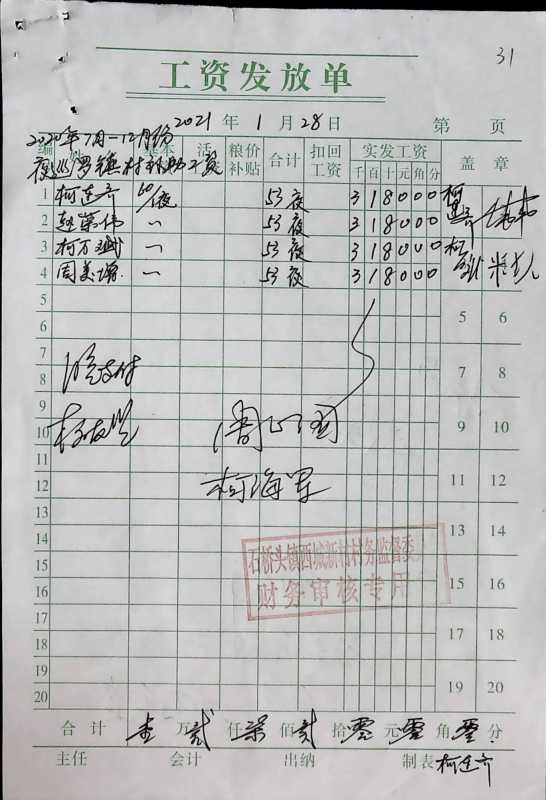 31
工资发放单
2021 年 1 月 28 日 第 页
2020年7月-12月份
夜巡罗锤村补助工资
编 姓 基本 活 粮价补贴 合计 扣回工资 实发工资 千百十元角分 盖章
1 柯连齐 60/夜 53夜 318000
2 赵荣伟 〃 53夜 318000
3 柯万斌 〃 53夜 318000
4 周美增 〃 53夜 318000
5 5 6
6
7 7 8
8 支付
9 9 10
10
11 11 12
12 柯海军
13 13 14
14 石桥头镇西城新村村务监督委
15 财务审核专用 15 16
16
17 17 18
18
19 19 20
20
合计 壹万贰仟柒佰贰拾零元零角零分
主任 会计 出纳 制表 柯连齐